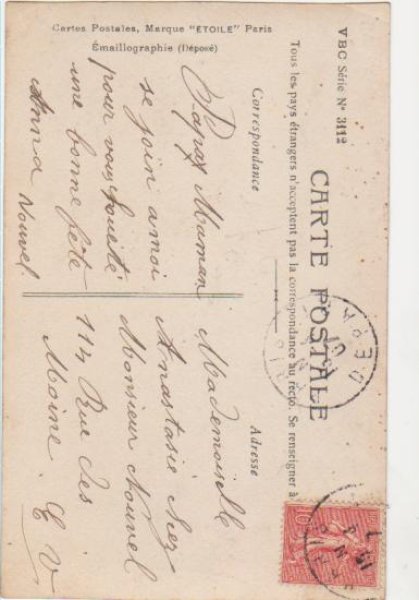 VBC Série N° 3112
CARTE POSTALE
Tous les pays étrangers n'acceptent pas la correspondance au recto. Se renseigner à
Correspondance
Adresse
Papa Maman
se join amoi
pour vous souété
une bonne fête
Anna
Nouvel
Mademoiselle
Anastasie chez
Monsieur Nouvel
114 Rue des
Moine E V
Cartes Postales, Marque "ETOILE" Paris
Émaillographie (Déposé)